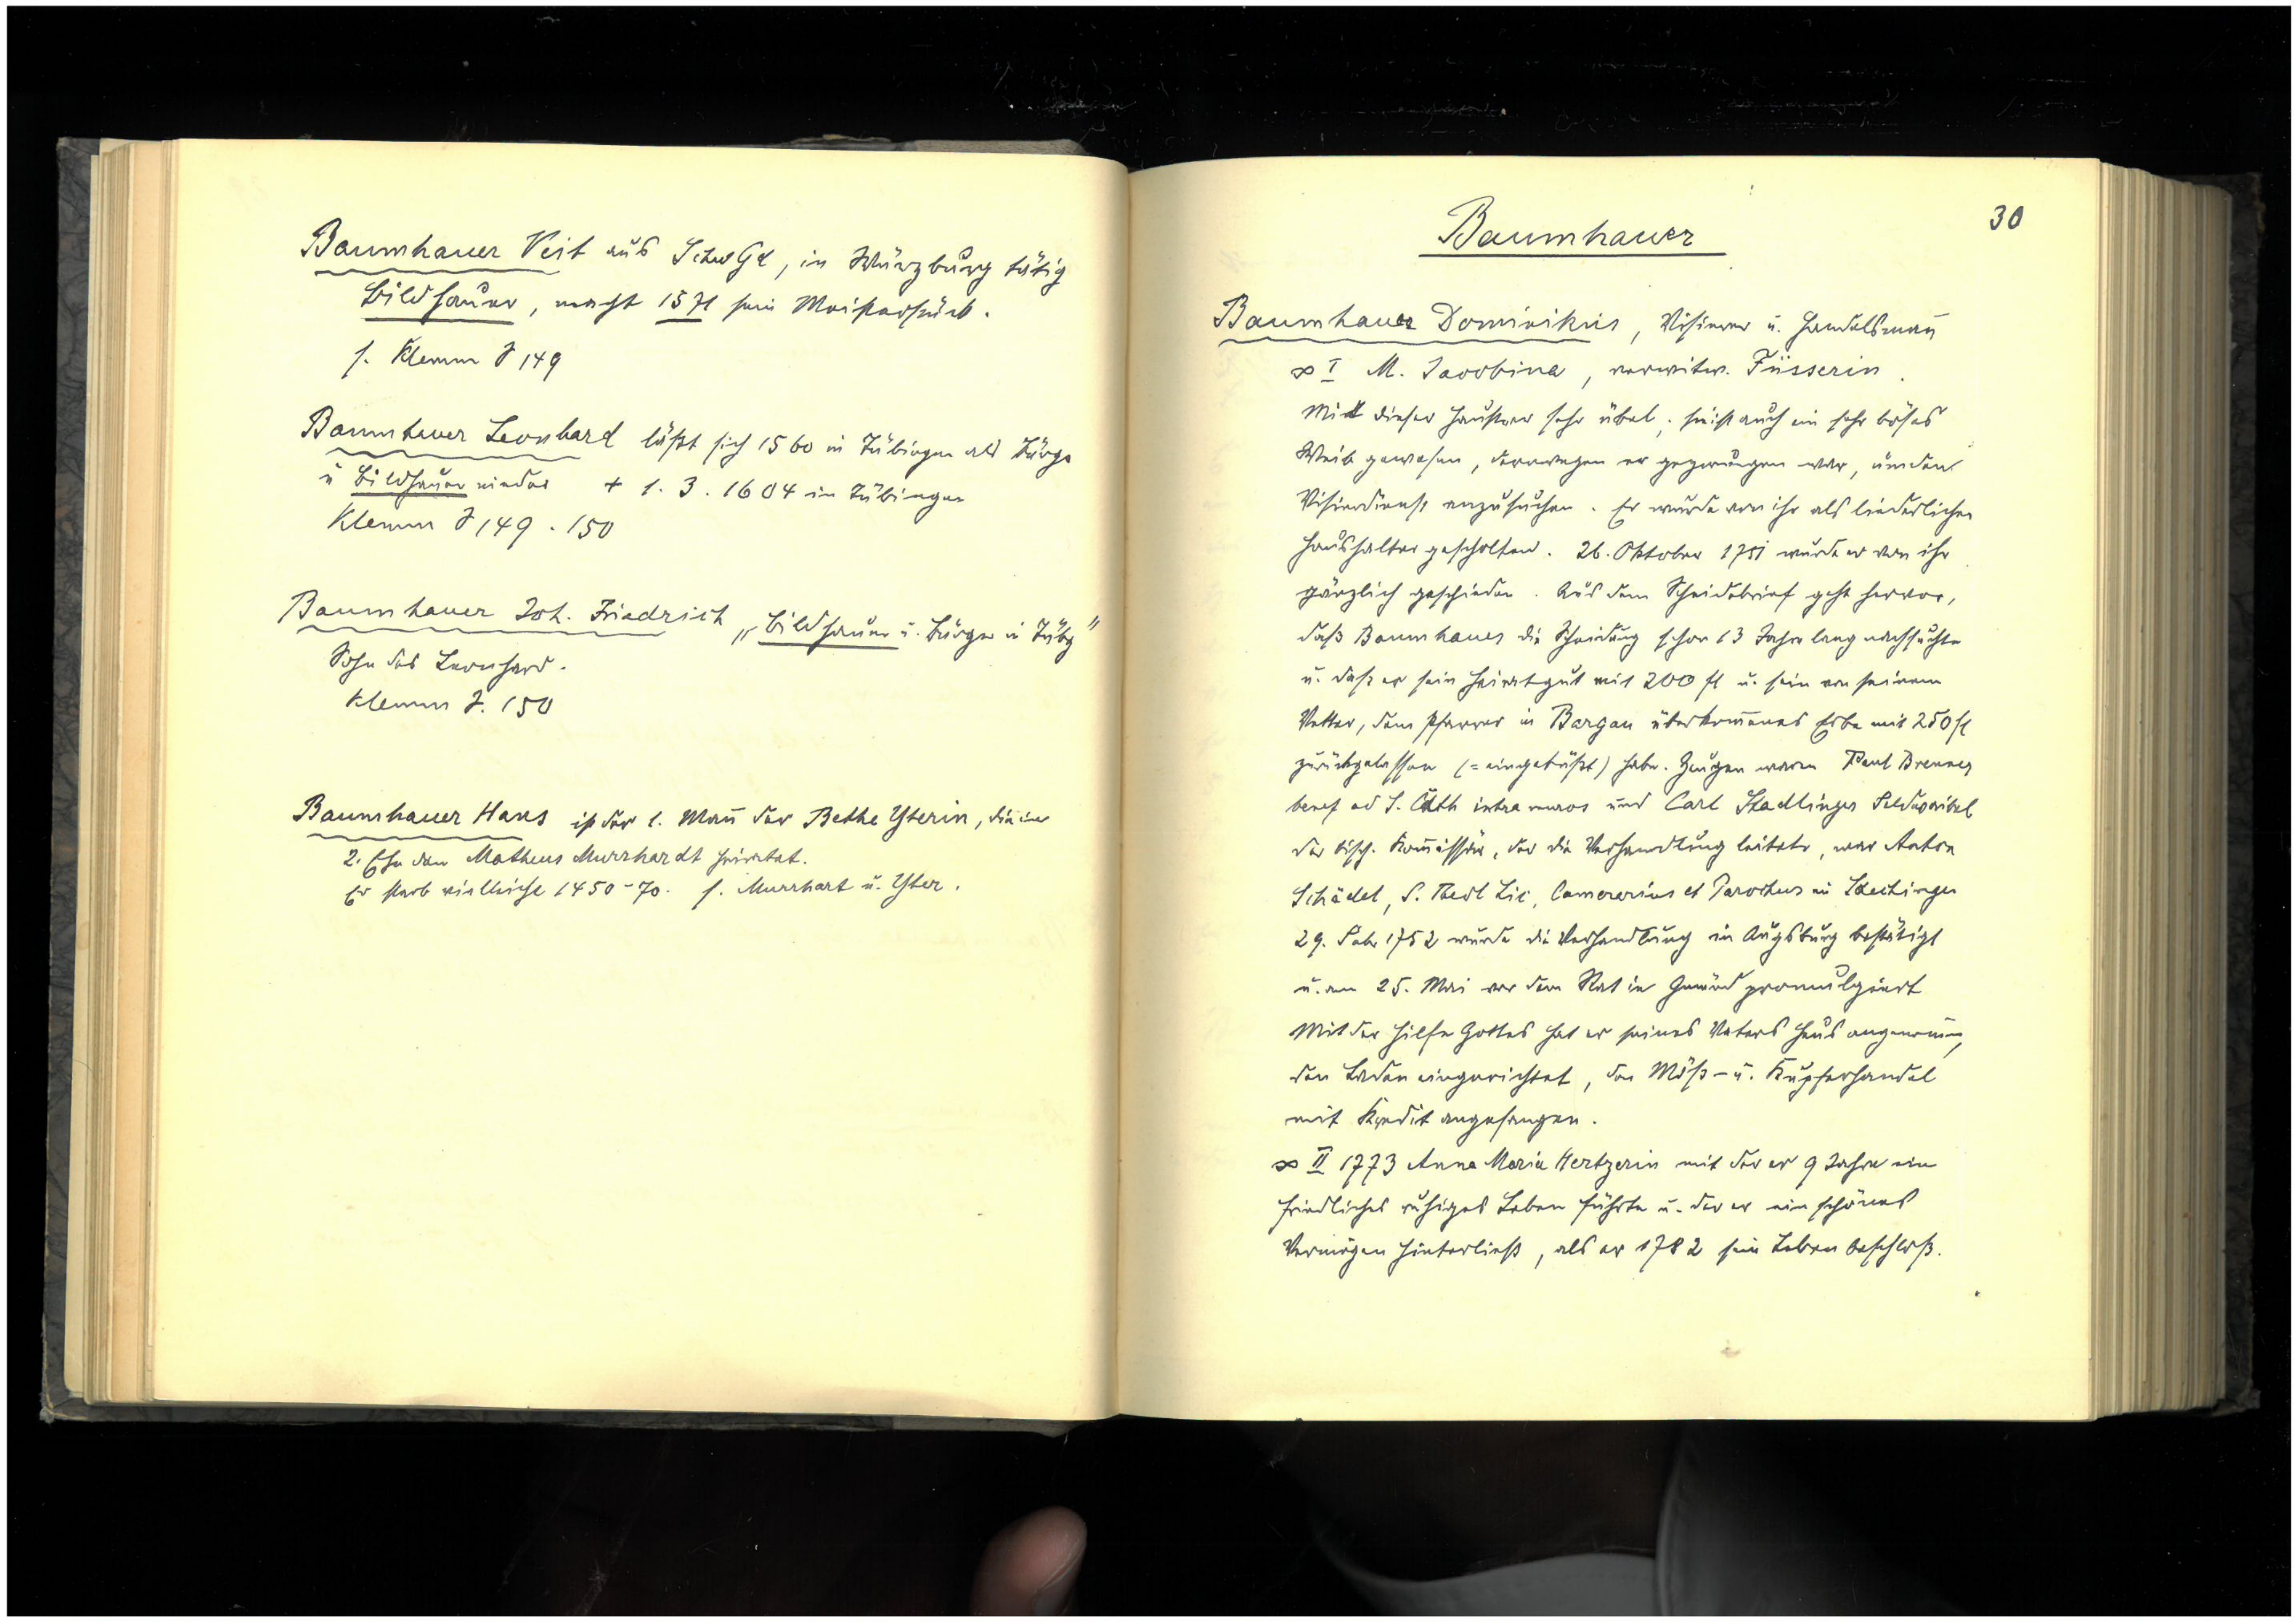 Baumhauer Veit aus SchwGd, in Würzburg tätig
Bildhauer, macht 1571 sein Meisterstück.
s. Klemm S 149
Baumhauer Leonhard läßt sich 1560 in Tübingen als Bürger
u Bildhauer nieder + 1.3.1604 in Tübingen
Klemm S 149.150
Baumhauer Joh. Friedrich „Bildhauer u. Bürger in Tübg"
Sohn des Leonhard.
Klemm S. 150
Baumhauer Hans ist der 1. Mañ der Bethe Yterin, die in
2. Ehe den Matheus Murrhardt heiratet.
Er starb vielleicht 1450-70. s. Murrhart u. Yter.
30
Baumhauer
Baumhauer Dominikus, Visierer u. Handelsmañ
∞ I M. Jacobina, verwitw. Füsserin.
Mit dieser hauste er sehr übel, sie ist auch ein sehr böses
Weib gewesen, derowegen er gezwungen war, um den
Visierdienst anzusuchen. Er wurde von ihr als liederlicher
Haushalter gescholten. 26. Oktober 1751 wurde er von ihr
gänzlich geschieden. Aus dem Scheidebrief geht hervor,
daß Baumhauer die Scheidung schon 13 Jahre lang nachsuchte
u. daß er sein Heiratsgut mit 200 fl u. sein von seinem
Vetter, dem Pfarrer in Bargau überkom̄enes Erbe mit 250 fl
zurückgelassen (= eingebüßt) habe. Zeugen waren Paul Brenner
benef ad S. Cath intra muros und Carl Stadlinger
der bisch. Kom̄issär, der die Verhandlung leitete, war Anton
Schädel, S. Theol Lic, Camerarius et Parochus in
29. Febr 1752 wurde die Verhandlung in Augsburg bestätigt
u. am 25. Mai vor dem Rat in Gmünd promulgiert
Mit der Hilfe Gottes hat er seines Vaters Haus angenom̄,
den Laden eingerichtet, den Möß- u. Kupferhandel
mit Kredit angefangen.
∞ II 1773 Anna Maria Hertzerin mit der er 9 Jahre ein
friedliches ruhiges Leben führte u. der er ein schönes
Vermögen hinterließ, als er 1782 sein Leben beschloß.